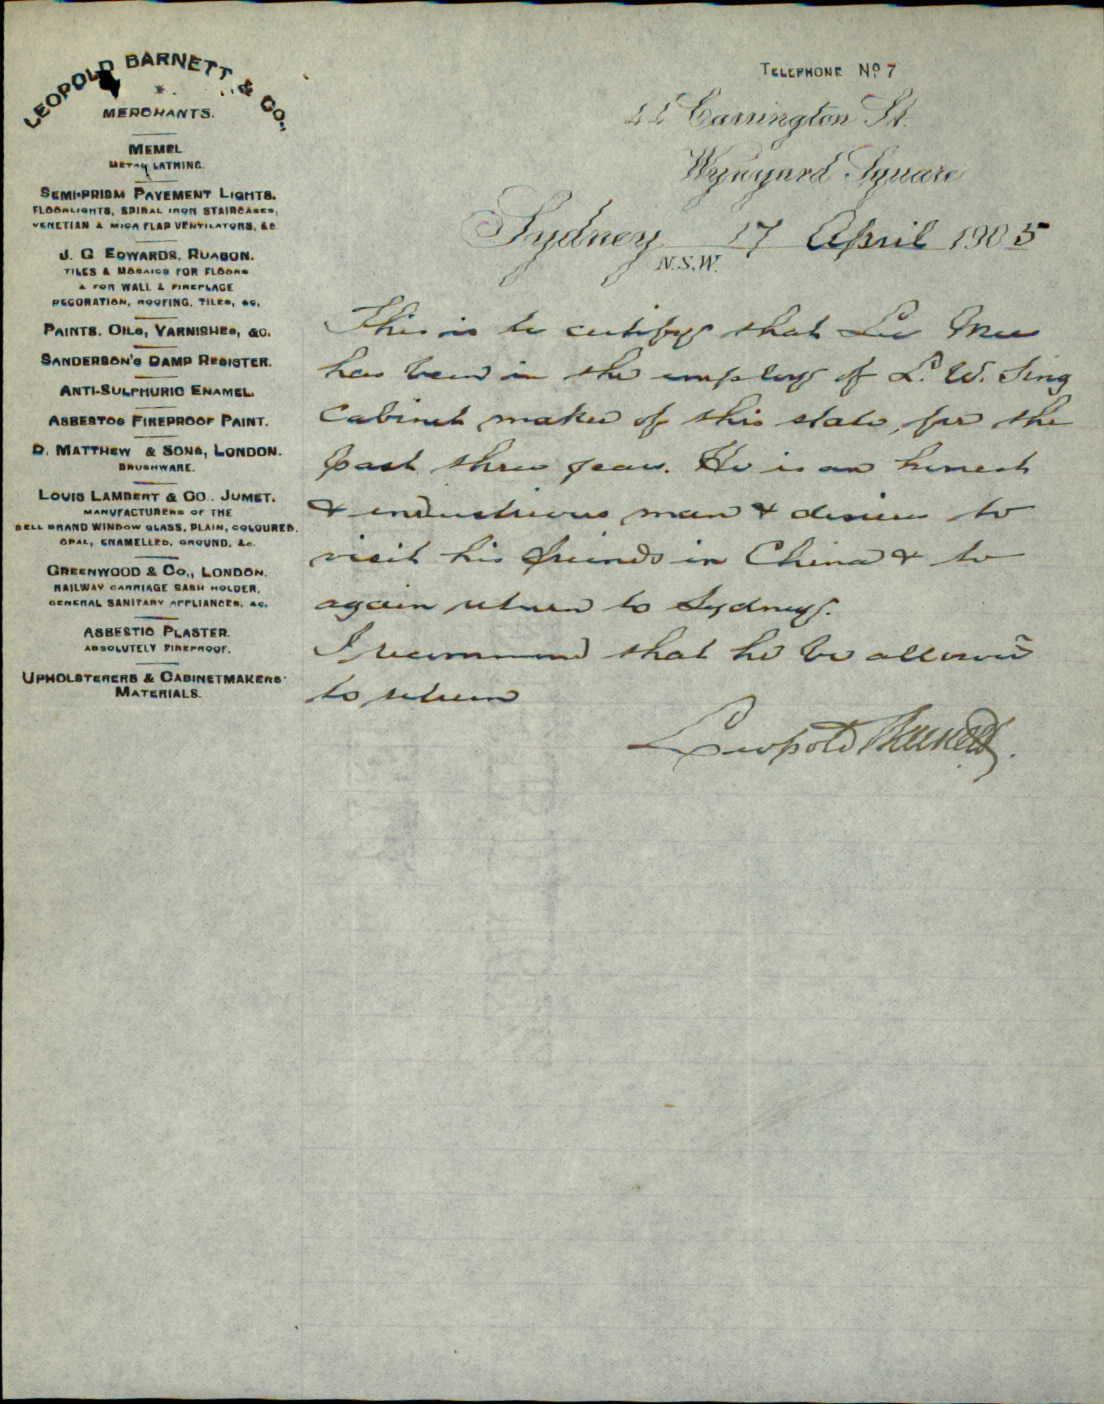 LEOPOLD BARNETT & CO.,
MERCHANTS.
MEMEL
METAL LATHING.
SEMI-PRISM PAVEMENT LIGHTS.
FLOORLIGHTS, SPIRAL IRON STAIRCASES,
VENETIAN & MICA FLAP VENTILATORS, &c.
J. C. EDWARDS, RUABON.
TILES & MOSAICS FOR FLOORS
& FOR WALL & FIREPLACE
DECORATION, ROOFING, TILES, &c.
PAINTS, OILS, VARNISHES, &c.
SANDERSON'S DAMP RESISTER.
ANTI-SULPHURIC ENAMEL.
ASBESTOS FIREPROOF PAINT.
D. MATTHEW & SONS, LONDON.
BRUSHWARE.
LOUIS LAMBERT & CO., JUMET.
MANUFACTURERS OF THE
BELL BRAND WINDOW GLASS, PLAIN, COLOURED,
OPAL, ENAMELLED, GROUND, &c.
GREENWOOD & CO., LONDON.
RAILWAY CARRIAGE SASH HOLDER,
GENERAL SANITARY APPLIANCES, &c.
ASBESTIC PLASTER.
ABSOLUTELY FIREPROOF.
UPHOLSTERERS & CABINETMAKERS'
MATERIALS.
TELEPHONE No 7
Carrington St.
Wynyard Square
Sydney 17 April 1905
N.S.W.
This is to certify that Mee
has been in the employ of L. W. Sing
Cabinet maker of this state, for the
past three years. He is an honest
& industrious man & desires to
visit his friends in China & to
again return to Sydney.
I recommend that he be allowed
to return
Leopold Barnett.